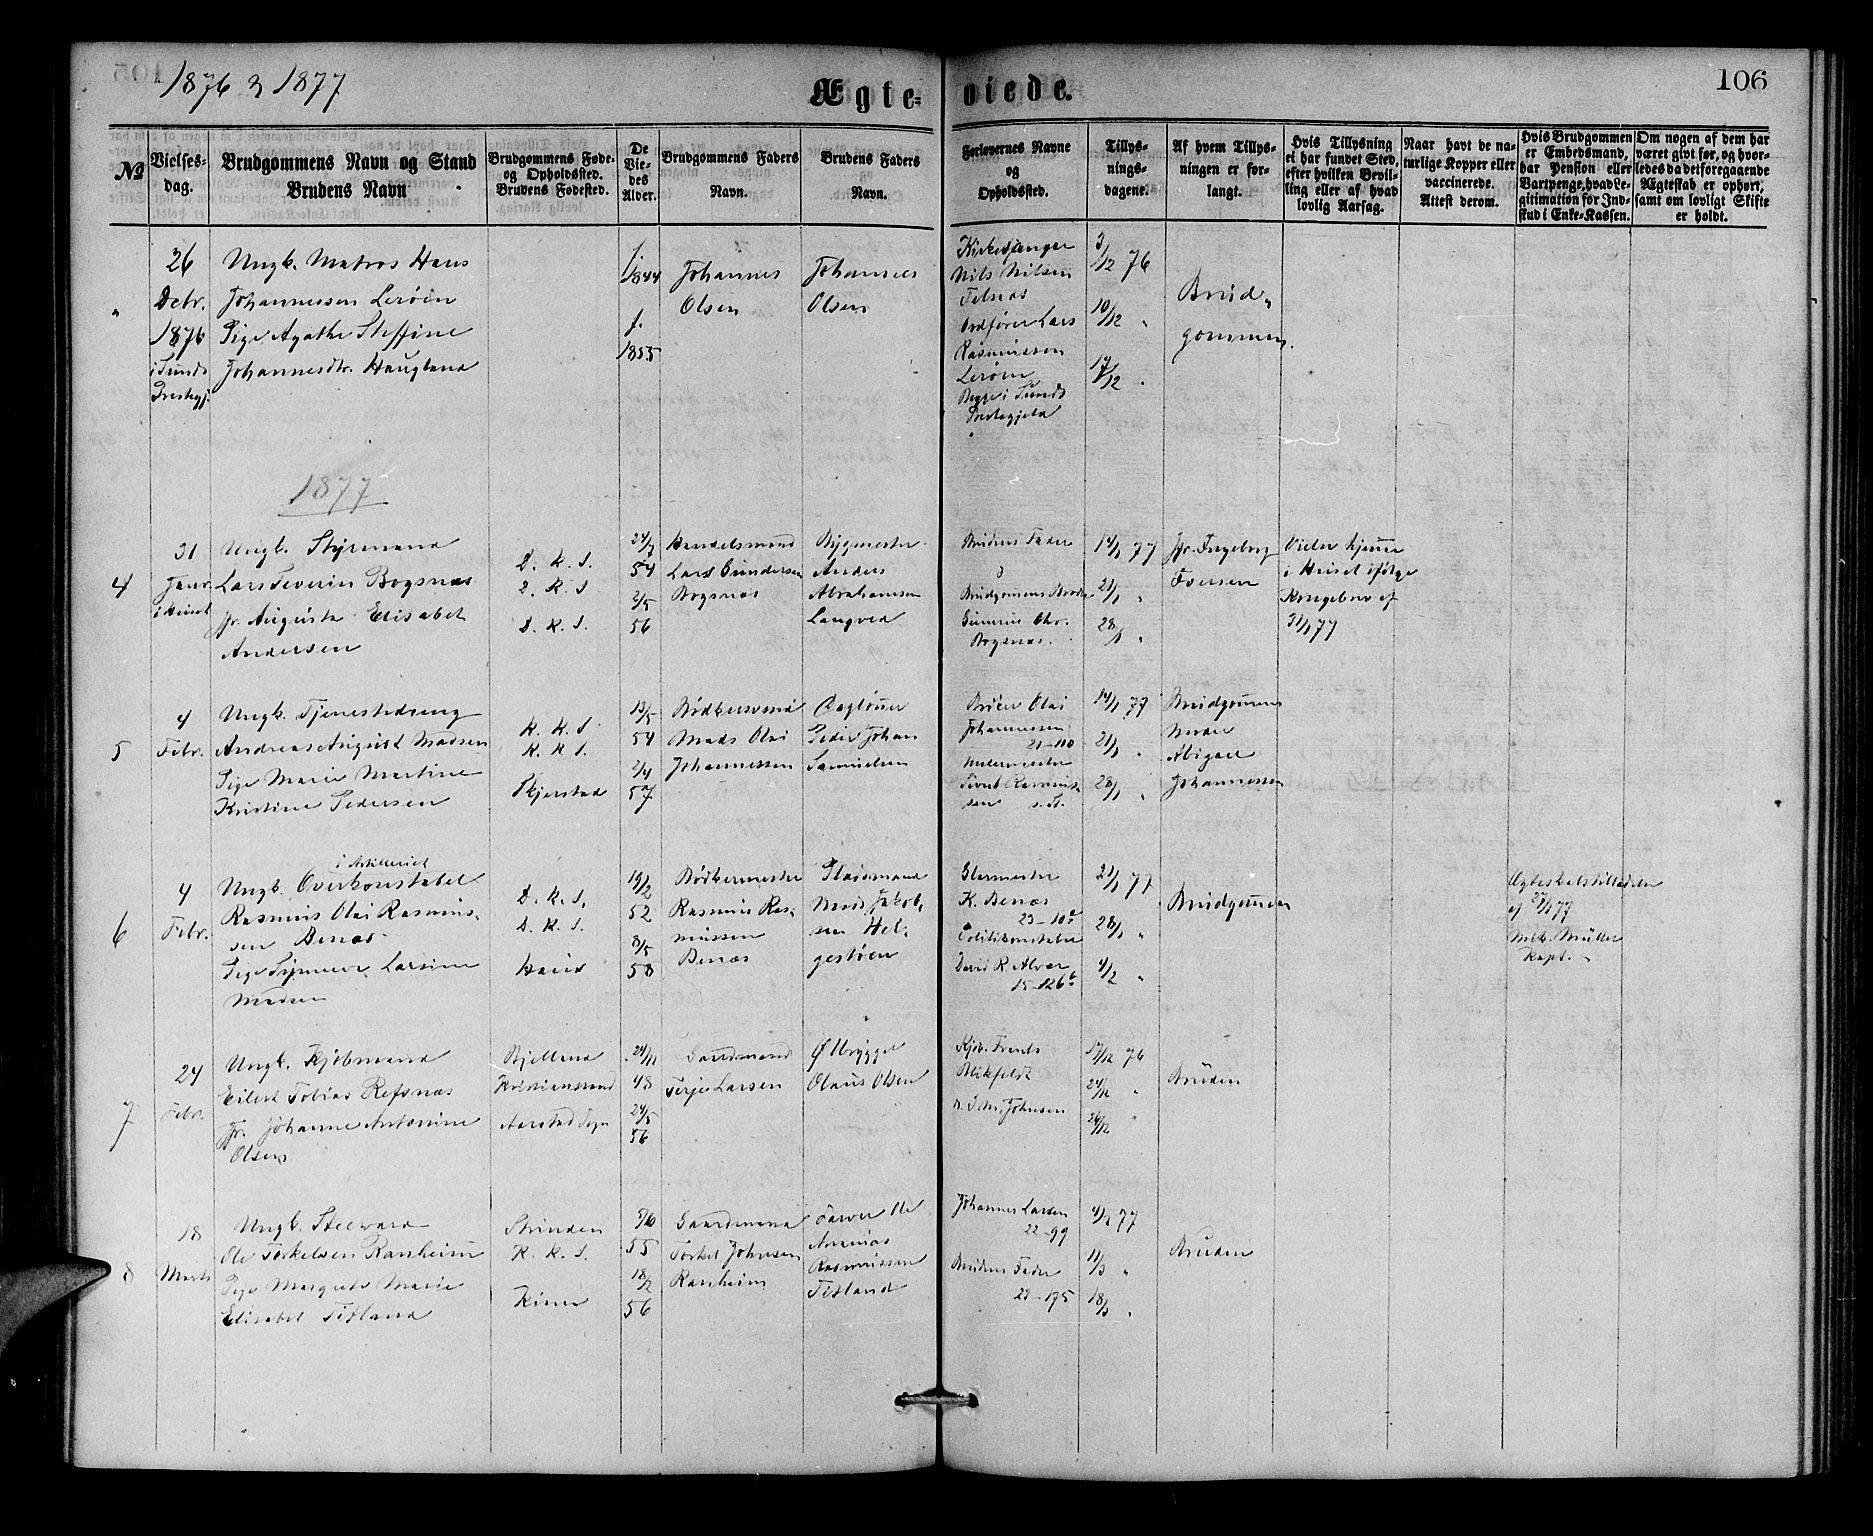 1876 & 1877
Ægte=
viede.
106
No
Vielses-
dag.
Brudgommens Navn og Stand
Brudens Navn
Brudgommens Føde-
og Opholdssted.
Brudens Fødested.
De
Vie-
des
Alder.
Brudgommens Faders
Navn.
Brudens Faders
Navn.
Forlovernes Navne
og
Opholdssted.
Tillys-
nings-
dagene.
Af hvem Tillys-
ningen er for-
langt.
Hvis Tillysning
ei har fundet Sted,
efter hvilken Bevil-
ling eller af hvad
lovlig Aarsag.
Naar havt de na-
turlige Kopper eller
vaccinerede.
Attest derom.
Hvis Brudgommen
er Embedsmand,
har Pension eller
Vartpenge, hvad Le-
gitimation for Ind-
skud i Enke-Kassen.
Om nogen af dem har
været givt før, og hvor-
ledes da det foregaaende
Ægteskab er ophørt,
samt om lovligt Skifte
er holdt.
26
Decbr.
1876
i Sunds
Prestegj.
Ungk. Matros Hans
Johannessen Lerøen
Pige Agathe Steffine
Johannesdtr. Haugland
f.
1844
f.
1855
Johannes
Olsen
Johannes
Olsen
Kirkesanger
Nils Nilsen
Telnæs
Ordfører Lars
Rasmussen
Lerøen
Begge i Sunds
Prestegjeld
3/12 76
10/12 "
17/12 "
Brud-
gommen.
1877
4
31
Januar
i Huset
Ungk. Styrmand
Lars Severin Bogsnæs
Jfr. Augusta Elisabet
Andersen
D. K. S.
D. K. S
D. K. S.
54
2/5
56
Handelsmand
Lars Gundersen
Bogsnæs
Bygmester
Anders
Abrahamsen
Langved
Brudens Fader
Brudgommens Broder
Bogsnæs.
14/1 77
21/1 "
28/1 "
Jfr. Ingeborg
Iversen
Viede hjemme
i Huset ifølge
Kongebrev af
31/1 77
5
4
Febr.
Ungk. Tjenestedreng
Andreas August Madsen
Pige Marie Martine
Kristine Pedersen
K. K. S
K. K. S.
Skjerstad
13/5
54
2/4
57
Bødkersvend
Mads Olai
Johannessen
Daglønner
Peder Johan
Samuelsen
Olai
Johannessen
21-110
Murermester
Sivert Rasmus-
sen s. St.
14/1 77
21/1 "
28/1 "
Brudgommens
Moder
Abigael
Johannessen
6
4
Febr.
i Artilleriet
Ungk. Overkonstabel
Rasmus Olai Rasmus-
sen Benæs
Pige Synneve Larsine
Madsen
D. K. S.
D. K. S.
Haus
19/2
52
8/5
58
Bødkermester
Rasmus Ras-
mussen
Benæs
Pladsmand
Mads Jakob-
sen Hel-
gestøen
Glarmester
K. Benæs
23-10
Politikonstabel
David R. Alver
15-126
21/1 77
28/1 "
4/2 "
Brudgommen
Ægteskabstilladelse
af 27/1 77
Müller
Kapt.
7
24
Febr.
Ungk. Kjøbmand
Eilert Tobias Refsnæs
Jfr. Johanne Antonine
Olsen
Bjelland
Kristianssand
Aarstad Sogn
24/11
48
24/5
56
Gaardmand
Terje Larsen
Ølbrygger
Olaus Olsen
Kjøb. Frents
Blikfeldt
J. M. Johnsen
17/12 76
24/12 "
26/12 "
Bruden
8
18
Marts
Ungk. Steward
Ole Torkelsen Ranheim
Pige Margrete Marie
Elisabet Titland
Strinden
K. K. S.
55
18/2
56
Gaardmand
Torkel Johnsen
Ranheim
Farver Ole
Ananias
Rasmussen
Titland
Johannes Larsen
22-99
Brudens Fader
23-175
4/3 77
11/3 "
18/3 "
Bruden